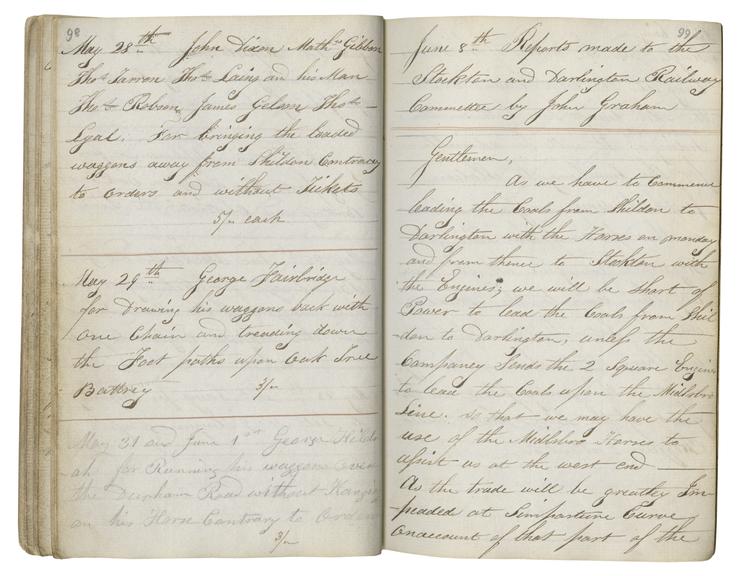 98
May 28th John Dixon Mathw Gibbon
Thos Tarron Thos Laing and his Man
Thos Robson James Gelson Thos
Lyal. For bringing the loaded
waggons away from Shildon Contracy
to orders and without Tickets
5/- each
May 29th George Fairbridge
for Drawing his waggons back with
one Chain and treading down
the Foot paths upon Oak Tree
Battrey 3/-
May 31 and June 1st George
for Running his waggons over
the Durham Road without Hanging
on his Horse Contrary to orders
3/-
99
June 8th Reports made to the
Stockton and Darlington Railway
Committee by John Graham
Gentlemen,
As we have to Commence
leading the Coals from Shildon to
Darlington with the Horses on monday
and from thence to Stockton with
the Engines; we will be Short of
Power to lead the Coals from Shil
don to Darlington, unless the
Company Sends the 2 Square Engines
to lead the Coals upon the Midlsbro
Line. So that we may have the
use of the Midlsbro Horses to
assist us at the west end
As the trade will be greatley Im-
peaded at Simpasture Curve
onaccount of that part of the